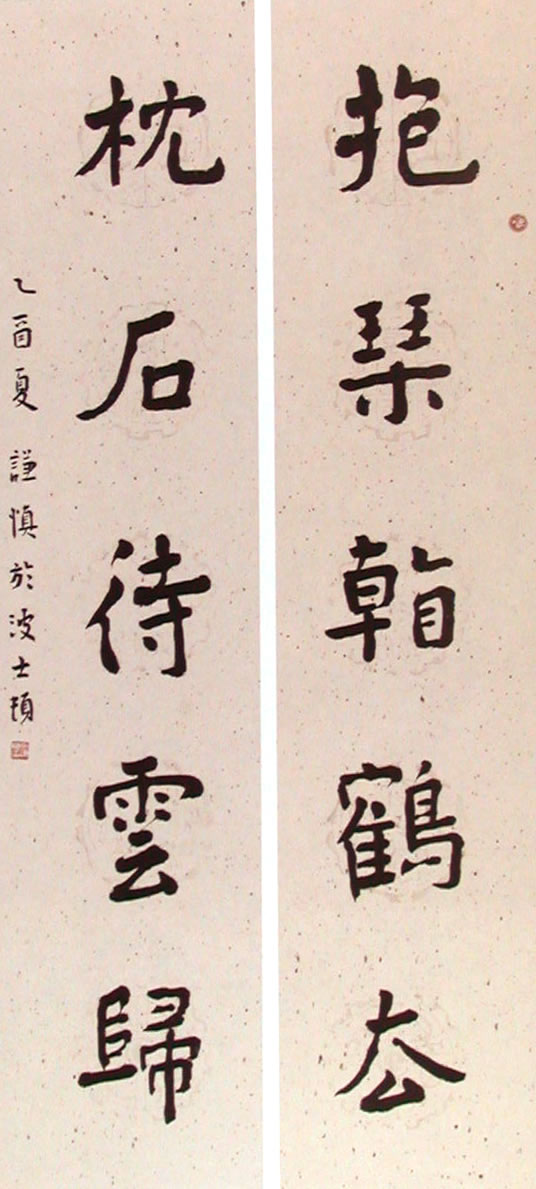 抱琴看鶴厺
枕石待雲歸
乙酉夏 謙慎於波士頓